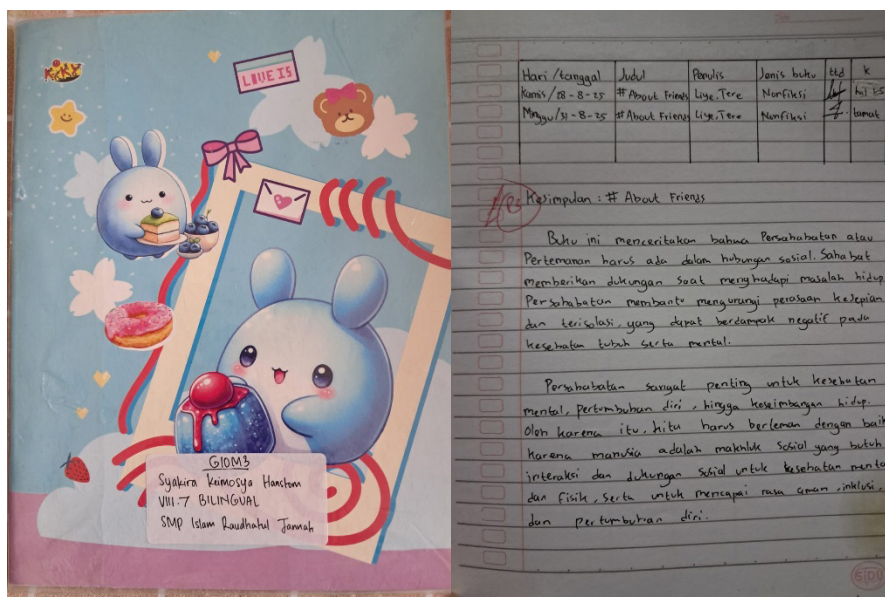 LOVE IS
GIOM3
Syakira Keimosya Hanstom
VIII.7 BILINGUAL
SMP Islam Raudhatul Jannah
Hari/tanggal Judul Penulis Jenis buku ttd k
Kamis/28-8-25 # About Friends Liye, Tere Nonfiksi hil 1-5
Minggu/31-8-25 # About Friends Liye, Tere Nonfiksi tamat
Kesimpulan : # About Friends
Buku ini menceritakan bahwa Persahabatan atau
Pertemanan harus ada dalam hubungan sosial. Sahabat
memberikan dukungan saat menghadapi masalah hidup.
Persahabatan membantu mengurangi perasaan kesepian
dan terisolasi, yang dapat berdampak negatif pada
kesehatan tubuh serta mental.
Persahabatan sangat penting untuk kesehatan
mental, pertumbuhan diri, hingga keseimbangan hidup.
Oleh karena itu, kita harus berteman dengan baik
karena manusia adalah makhluk sosial yang butuh
interaksi dan dukungan sosial untuk kesehatan menta
dan fisik, serta untuk mencapai rasa aman, inklusi,
dan pertumbuhan diri.
SIDU